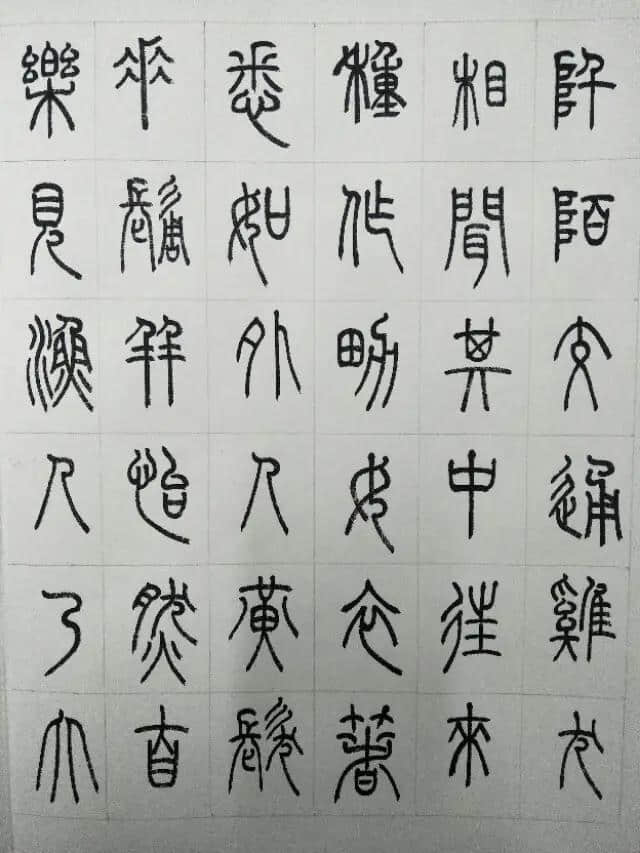 阡陌交通雞犬
相聞其中往來
種作男女衣著
悉如外人黃髮
垂髫并怡然自
樂見漁人乃大